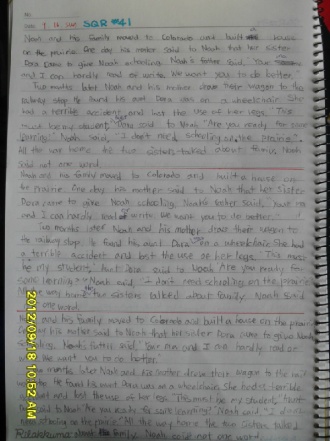 SQR #41
Noah and his family moved to Colorado and built house
on the prairie. One day his mother said to Noah that her sister
Dora came to give Noah schooling. Noah's father said, Your
and I can hardly read or write. We want you to do better.
Two months later Noah and his mother drove their wagon to the
railway stop. He found his aunt Dora was on a wheelchair. She
had a terrible accident and lost the use of her legs. This
must be my student Dora said to Noah. Are you ready for some
learning? Noah said, I don't need schooling on the prairie.
All the way home the two sisters talked about family. Noah
said not one word.
Noah and his family moved to Colorado and built a house on
the prairie. One day his mother said to Noah that her sister
Dora came to give Noah schooling. Noah's father said, Your ma
and I can hardly read or write we want you to do better.
Two months later Noah and his mother drove their wagon to
the railway stop. He found his aunt Dora on a wheelchair. She had
a terrible accident and lost the use of her legs. This must
be my student, Aunt Dora said to Noah. Are you ready for
some learning? Noah said, I don't need schooling on the prairie
the way home the sisters talked about family. Noah said
one word.
Noah and his family moved to Colorado and built a house on the prairie.
One day his mother said to Noah that her sister Dora came to give Noah
schooling. Noah's father said, Your Ma and I are hardly read or
write We want you to do better.
months later Noah and his mother drove their wagon to the rail
He found his aunt Dora was on a wheelchair. She had a terrible
and lost the use of her legs. This must be my student, Aunt
said to Noah Are you ready for some learning? Noah said "I don't
schooling on the prairie." All the way home the two sisters talked
family. Noah said not one word.
2012/09/18 10:52 AM